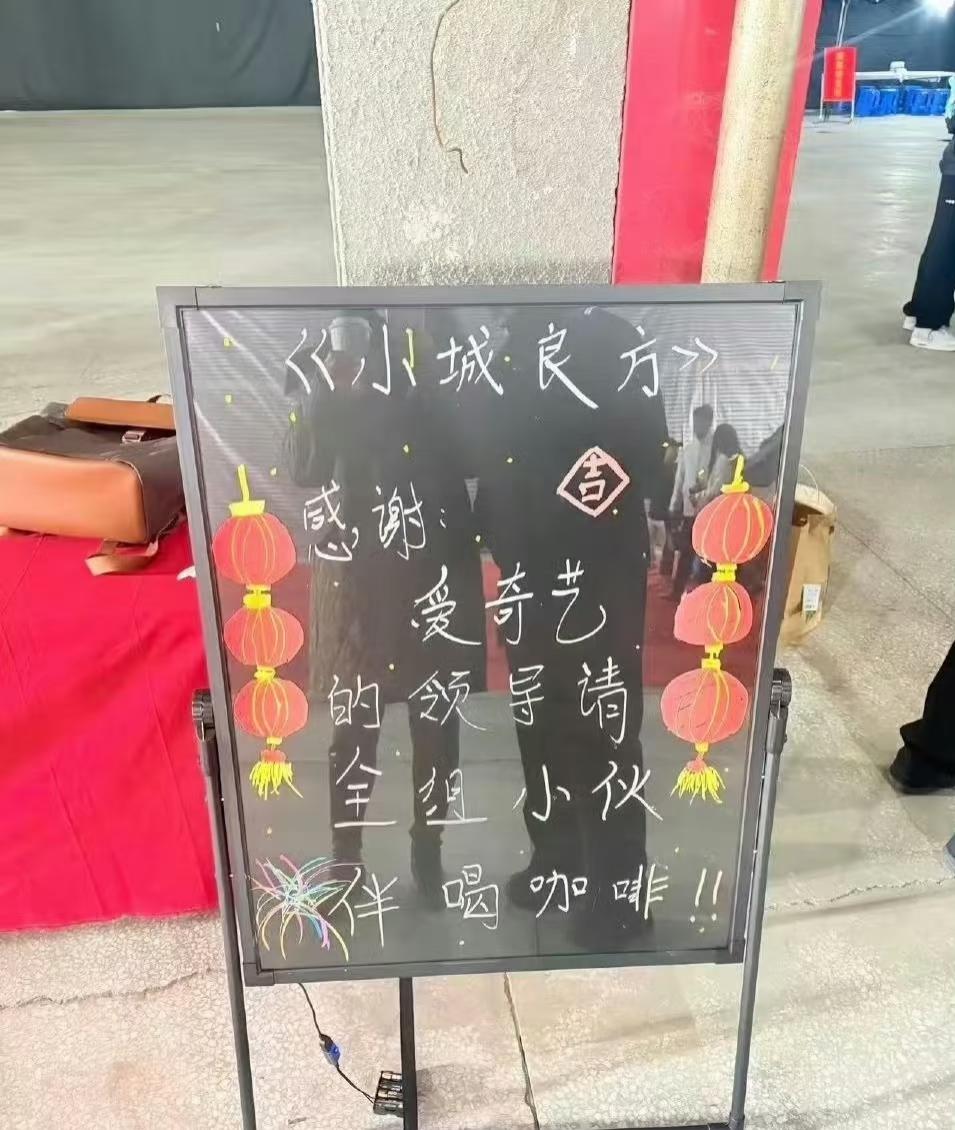 《小城良方》
吉
感谢：
爱奇艺
的领导请
全组小伙
伴喝咖啡!!